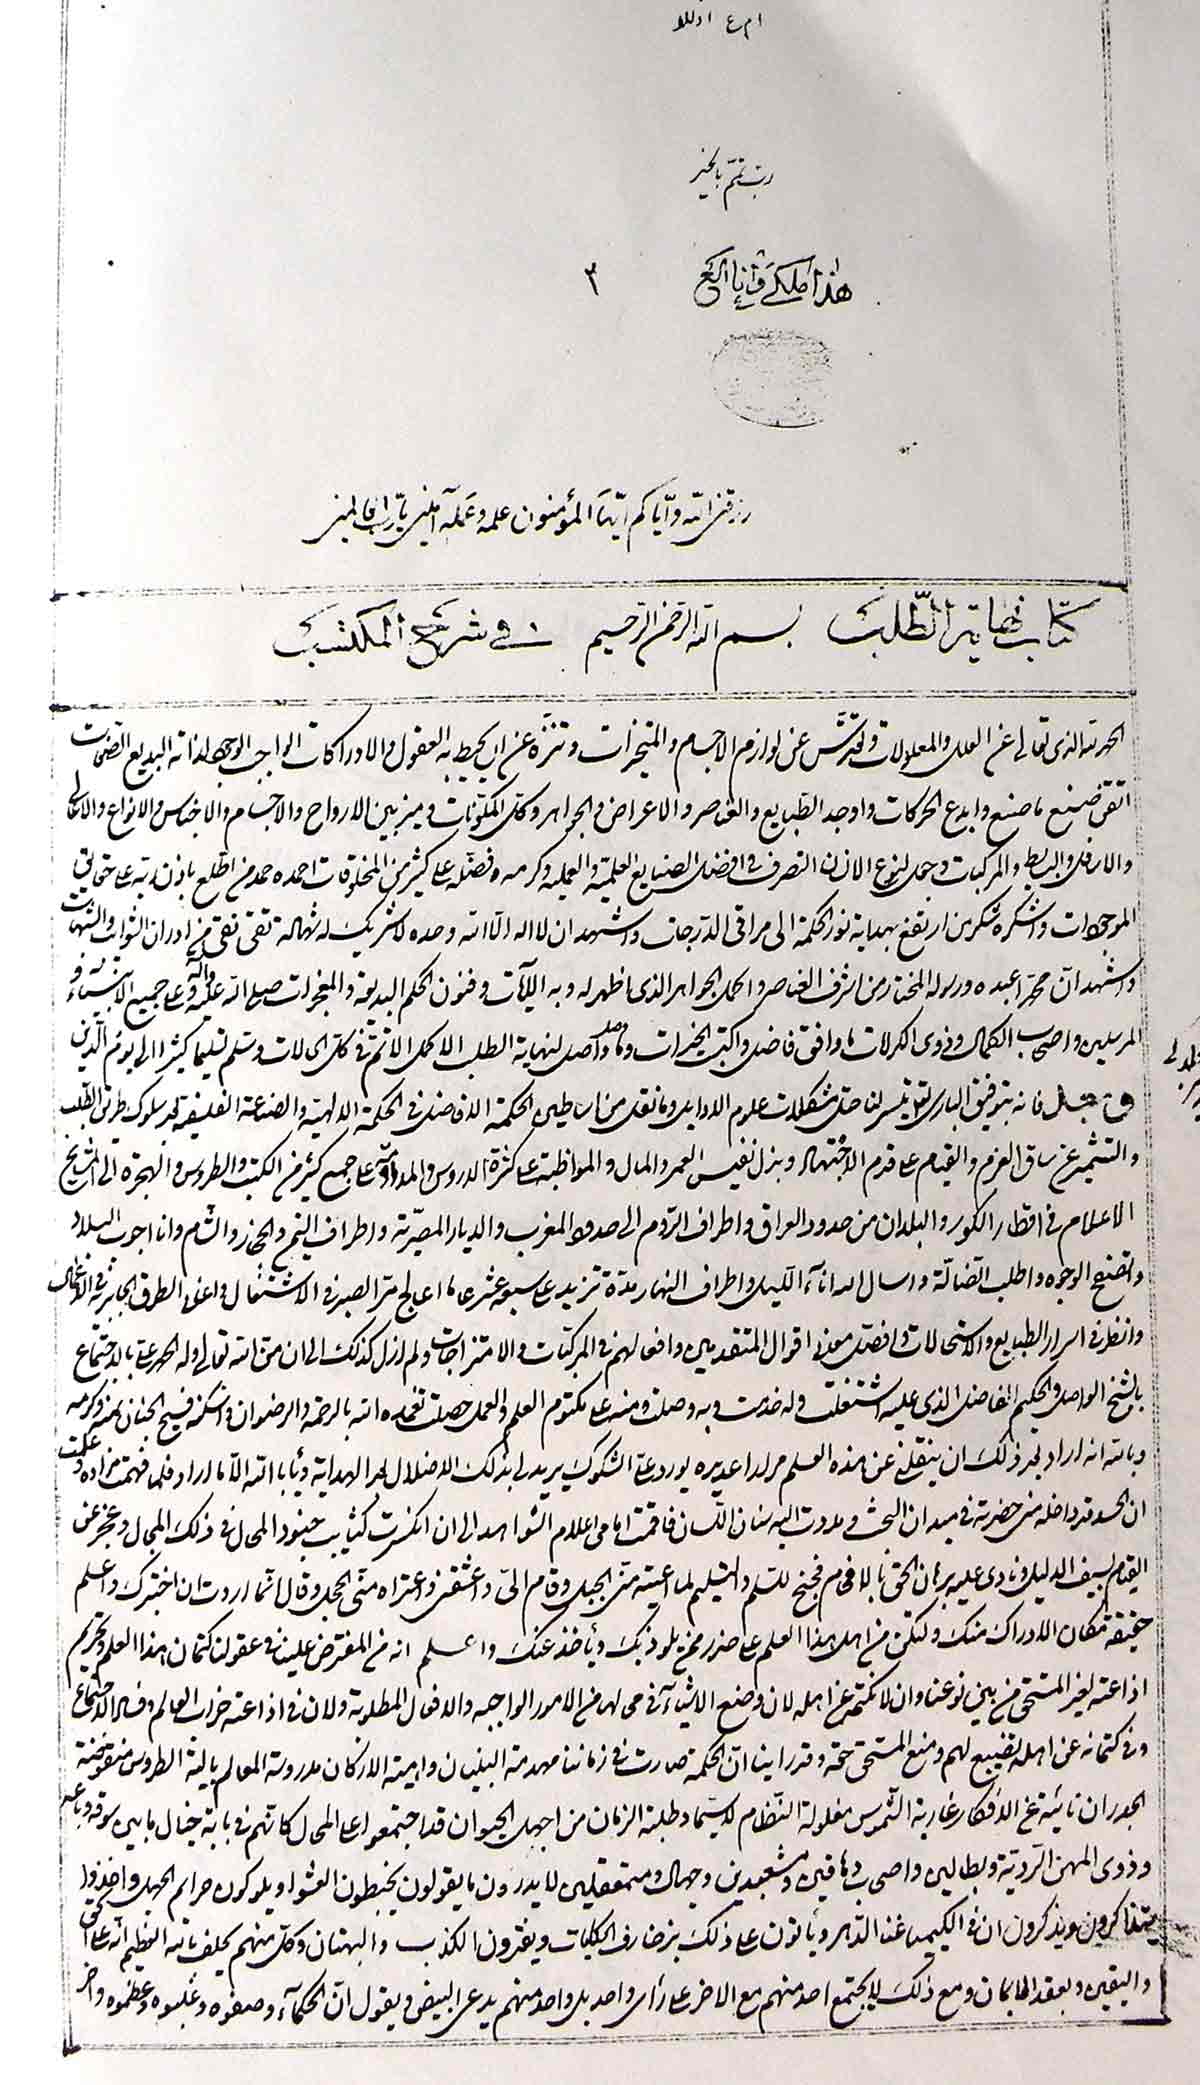 رب تمم بالخير
هذا ملكى وانا
٣
رزقنى الله واياكم ايها المؤمنون علمه وعمله آمين يا رب العالمين
كتاب نهاية الطلب بسم الله الرحمن الرحيم فى شرح المكتسب
الحمد لله الذى تعالى عن العلل والمعلولات وتقدس عن لوازم الاجسام والمتحيزات وتنزه عن ان يحيط به العقول والادراكات الواجب الوجود لذاته البديع الصفات
اتقن صنع ما صنع وابدع الحركات واوجد الطبايع والعناصر والاعراض والجواهر وكل المكونات وميز بين الارواح والاجسام والاجناس والانواع والاعالى
والاسافل والبسايط والمركبات وجعل لنوع الانسان التصرف فى افضل الصنايع العلمية والعملية وكرمه وفضله على كثير من المخلوقات احمده حمد من اطلع باذن ربه على حقايق
الموجودات واشكره شكر من ارتفع بهداية نور الحكمة الى مراقى الدرجات واشهد ان لا اله الا الله وحده لا شريك له شهادة تقى نقى من ادران الشوائب والشبهات
واشهد ان محمدا عبده ورسوله المختار من اشرف العناصر واكمل الجواهر الذى اظهر له وبه الآيات وفنون الحكم البديعة والمعجزات صلى الله عليه وآله وعلى جميع الانبياء و
المرسلين واصحاب الكمال وذوى الكرامات ما وافق فاضل واكتسب الخيرات وما وصل واصل لنهاية الطلب الاكمل الاتم فى كل الحالات وسلم تسليما كثيرا الى يوم الدين
وبعد فانه بتوفيق البارى تيسر لنا حل مشكلات علوم الاوايل وما نقل من اساطين الحكمة الافاضل فى الحكمة الالهية والصناعة الفلسفية بعد سلوك طرق الطلب
والتشمير عن ساق العزم والقيام على قدم الاجتهاد وبذل نفيس العمر والمال والمواظبة على كثرة الدروس والمداومة على جمع كثير من الكتب والطروس والهجرة الى المشايخ
الاعلام فى اقطار الكور والبلدان من حدود العراق واطراف الروم الى حدود المغرب والديار المصرية واطراف اليمن والحجاز والشام وانا اجوب البلاد
واتصفح الوجوه واطلب الضالة واسال الله اناء الليل واطراف النهار مدة تزيد على سبعة عشر عاما اعالج مر الصبر فى الاشتغال وأعانى الطرق الجابرية فى الاعمال
وانظر فى اسرار الطبايع والاستحالات وافصل معانى اقوال المتقدمين وافعالهم فى المركبات والامتزاجات ولم ازل كذلك الى ان من الله تعالى وله الحمد على بالاجتماع
بالشيخ الواصل والحكيم الفاضل الذى عليه اشتغلت وله خدمت وبه وصلت ومنه على مكتوم العلم والعمل حصلت تغمده الله بالرحمة والرضوان واسكنه فسيح الجنان بمنه وكرمه
وبالله انه اراد بعد ذلك ان ينقلنى عن هذه العلم مرارا عديده يورد على الشكوك يريد لى بذلك الاضلال بعد الهداية ويأبا الله الا ما اراد فلما فهمت مراده وعلمت
ان الحسد قد داخله منى حضرته فى ميدان البحث ومددت اليه سنان اللسان فاقمت امامى اعلام الشواهد الى ان انكسرت كتايب جنود المحال فى ذلك المجال وعجز عن
القيام لسيف الدليل ونادى عليه برهان الحق بالافحام فجنح للسلم والتسليم لما اعيته منى الحيل وقام الى واعتنقنى واعتراه منى الخجل وقال انما اردت ان اختبرك واعلم
حقيقة مكان الادراك منك ولتكن من اهل هذا العلم على حذر ممن يلوذ بك ويأخذ عنك واعلم انه من المفترض علينا فى عقولنا كتمان هذا العلم وتحريم
اذاعته لغير المستحق من بنى نوعنا وان لا نكتمه عن اهله لان وضع الاشياء فى محلها من الامور الواجبه والافعال المطلوبة ولان فى اذاعته خراب العالم وفساد الاجتماع
وفى كتمانه عن اهله تضييع لهم ومنع المستحق حقه وقد راينا ان الحكمة صارت فى زماننا مهدمة البنيان واهية الاركان مدروسة المعالم بالية الطروس منقوضة
الجدران نائية عن الافكار غاربة الشموس مغلولة النظام لا سيما وطلبة الزمان من اجهل الحيوان قد اجتمعوا على المحال كانهم فى بابة خيال ما بين سوقة وباعه
وذوى المهن الردية وبطالين واصحاب دهاقين ومشعبدين وجهال ومتعقلين لا يدرون ما يقولون يخبطون العشوا ويلوكون حرايم الجهل واخذوا
يتذاكرون ويذكرون ان فى الكيميا غنا الدهر ويأتون على ذلك بزخارف الحكايات ويفترون الكذب والبهتان وكل منهم يحلف بالله العظيم انه على الحق
واليقين وبعقد الايمان ومع ذلك لا يجتمع احد منهم مع الاخر على رأى واحد بل واحد منهم يدعى البيض ويقول ان الحكماء وصفوه وغلبوه وعظموه واخر